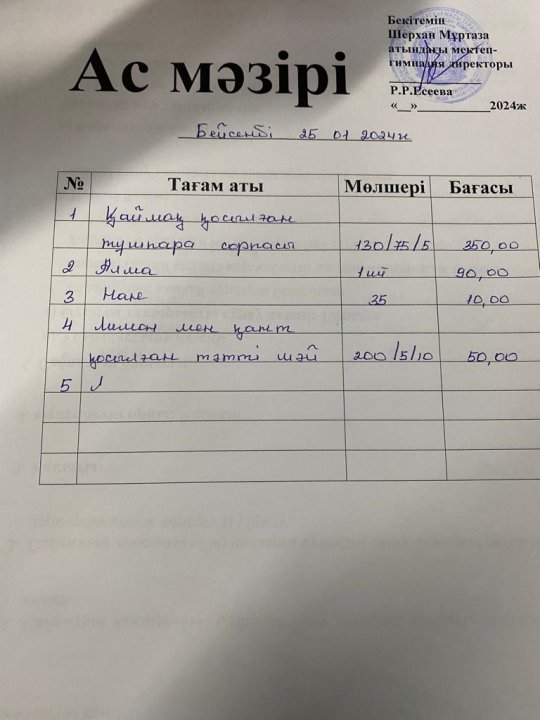 Бекітемін
Шерхан Мұртаза
атындағы мектеп-
гимназия директоры
Р.Р.Есеева
«__»____________2024ж
Ас мәзірі
Бейсенбі 25 01 2024ж
№ Тағам аты Мөлшері Бағасы
1 Қаймақ қосылған
тұшпара сорпасы 130/75/5 350,00
2 Алма 1шт 90,00
3 Нан 35 10,00
4 Лимон мен қант
қосылған тәтті шәй 200/5/10 50,00
5